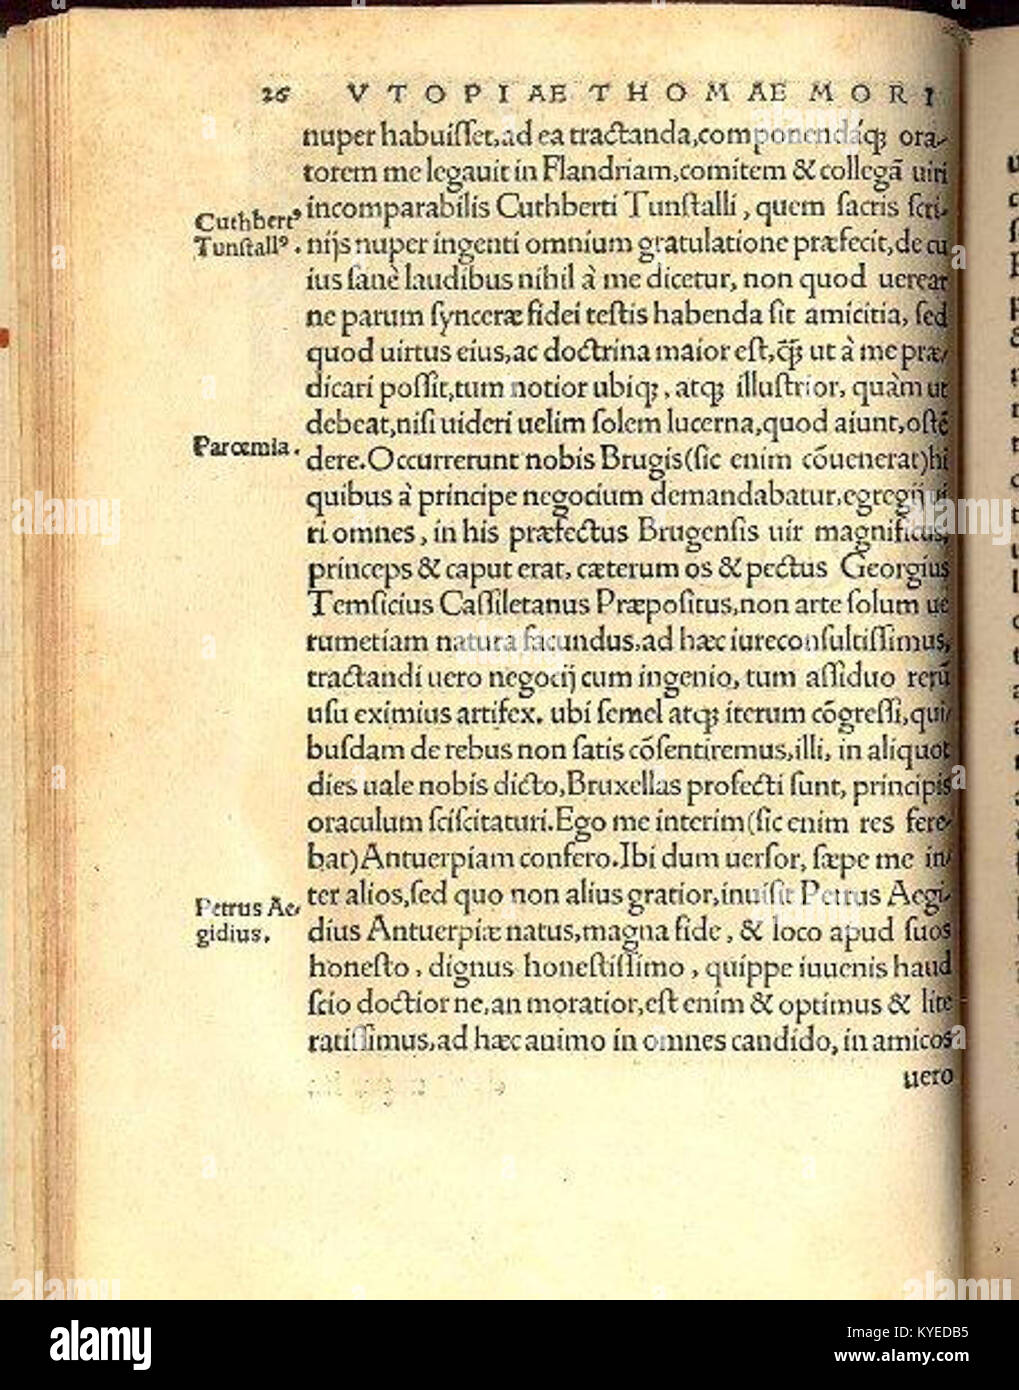 26 VTOPIAE THOMAE MORI
nuper habuiſſet, ad ea tractanda, componendáq; ora-
torem me legauit in Flandriam, comitem & collegã uiri
Cuthbertꝰ
Tunſtallꝰ.
incomparabilis Cuthberti Tunſtalli, quem ſacris ſcri-
nijs nuper ingenti omnium gratulatione præfecit, de cu
ius ſanè laudibus nihil à me dicetur, non quod uerear
ne parum ſynceræ fidei teſtis habenda ſit amicitia, ſed
quod uirtus eius, ac doctrina maior eſt, q̃ꝫ ut à me præ-
dicari poſſit, tum notior ubiq;, atq; illuſtrior, quàm ut
debeat, niſi uideri uelim ſolem lucerna, quod aiunt, oſtẽ
Parœmia.
dere. Occurrerunt nobis Brugis (ſic enim cõuenerat) hi
quibus à principe negocium demandabatur, egregij ui
ri omnes, in his præfectus Brugenſis uir magnificus,
princeps & caput erat, cæterum os & pectus Georgius
Temſicius Caſſiletanus Præpoſitus, non arte ſolum ue
rumetiam natura facundus, ad hæc iureconſultiſſimus,
tractandi uero negocij cum ingenio, tum aſſiduo rerũ
uſu eximius artifex. ubi ſemel atq; iterum cõgreſſi, qui-
buſdam de rebus non ſatis cõſentiremus, illi, in aliquot
dies uale nobis dicto, Bruxellas profecti ſunt, principis
oraculum ſciſcitaturi. Ego me interim (ſic enim res fere-
bat) Antuerpiam confero. Ibi dum uerſor, ſæpe me in-
Petrus Ae-
gidius.
ter alios, ſed quo non alius gratior, inuiſit Petrus Aegi-
dius Antuerpiæ natus, magna fide, & loco apud ſuos
honeſto, dignus honeſtiſſimo, quippe iuuenis haud
ſcio doctior ne, an moratior, eſt enim & optimus & lite
ratiſſimus, ad hæc animo in omnes candido, in amicos
uero
alamy
Image ID: KYEDB5
www.alamy.com